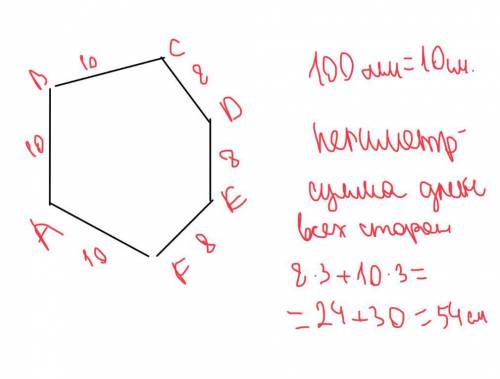 B
10
C
8
D
10
8
A
E
10
8
F
100 мм = 10 см.
Периметр -
сумма длин
всех сторон
8·3+10·3=
=24+30=54 см